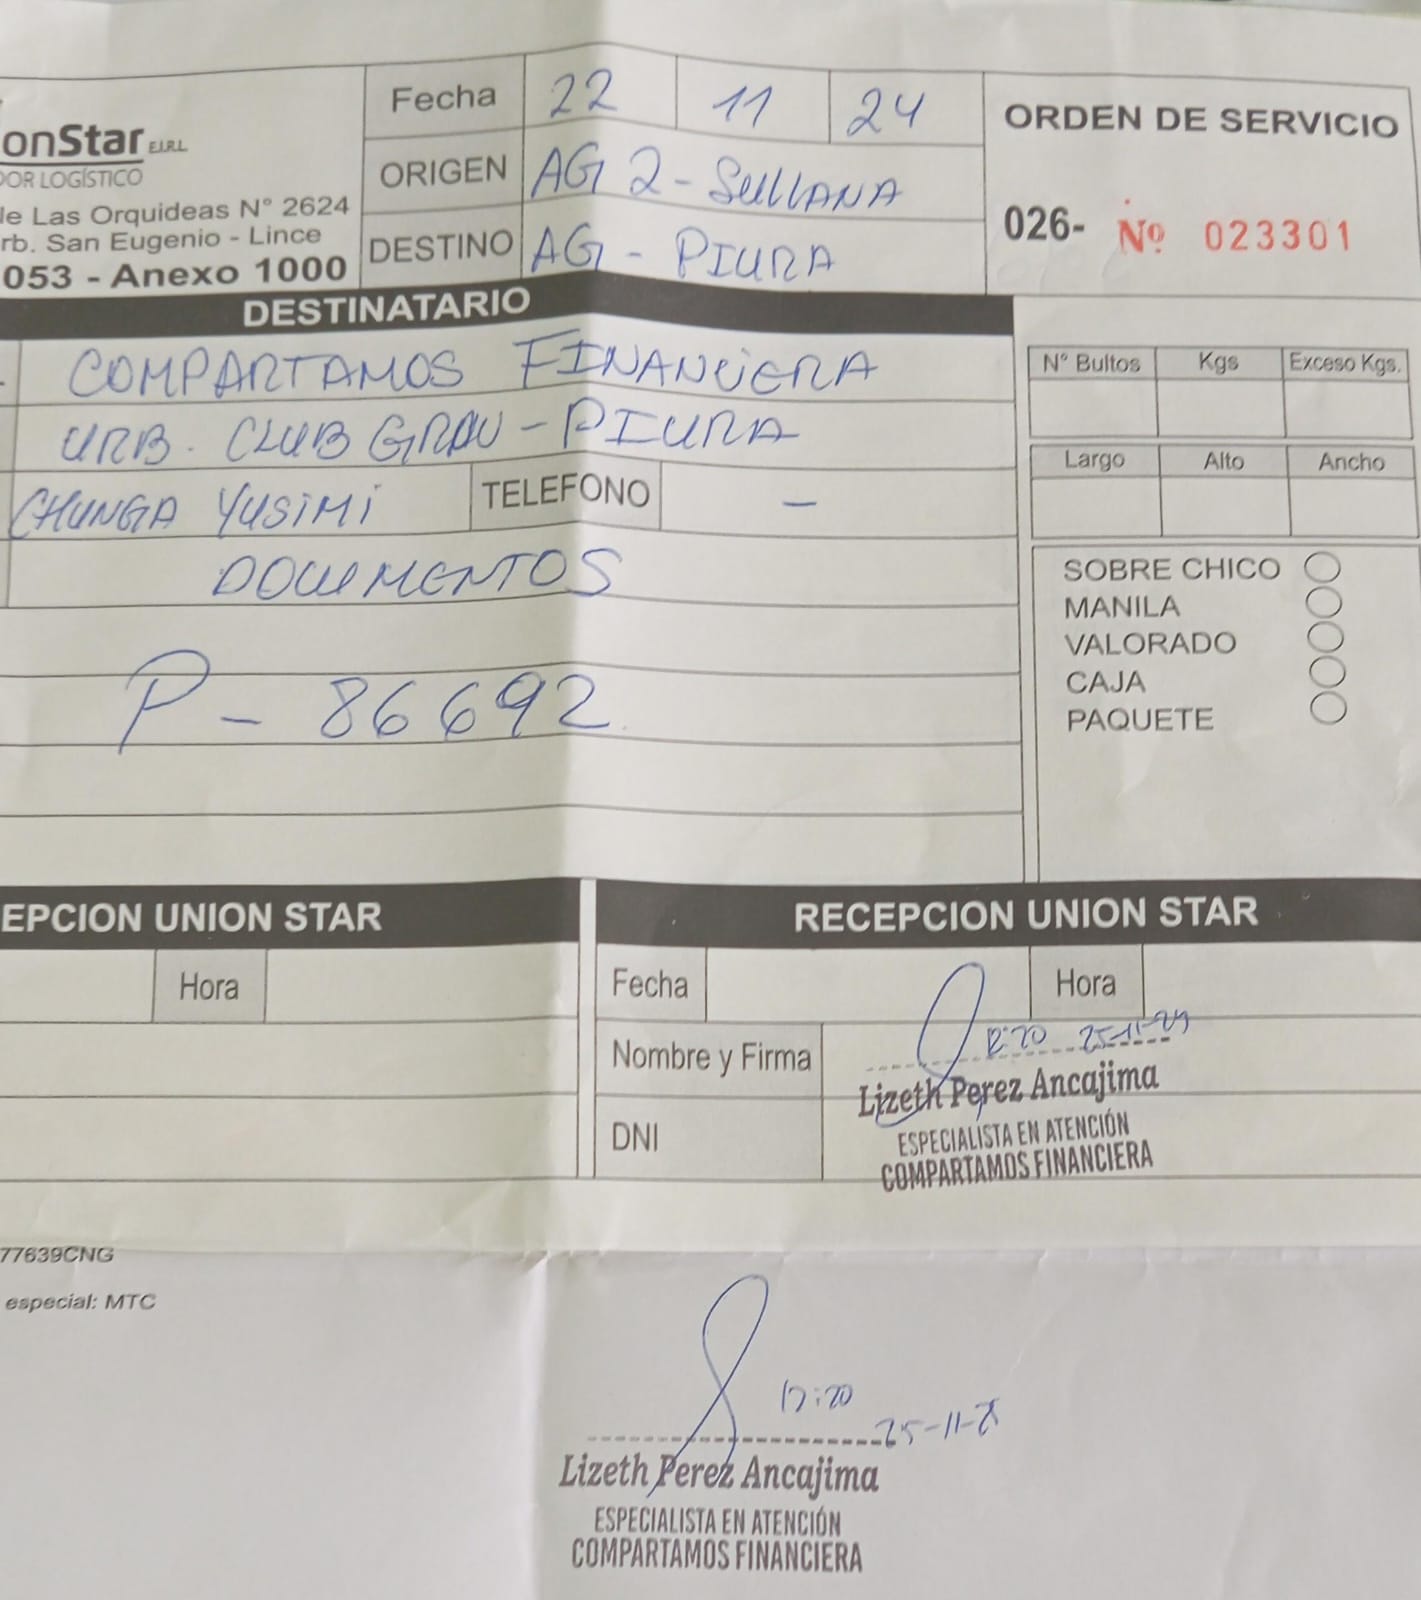 onStar E.I.R.L
DOR LOGÍSTICO
le Las Orquideas N° 2624
rb. San Eugenio - Lince
053 - Anexo 1000
Fecha 22 11 24
ORIGEN AG 2 - SULLANA
DESTINO AG - PIURA
ORDEN DE SERVICIO
026- Nº 023301
DESTINATARIO
COMPARTAMOS FINANCIERA
URB. CLUB GRAU - PIURA
CHUNGA YUSIMI TELEFONO -
DOCUMENTOS
P - 86692
N° Bultos Kgs Exceso Kgs.
Largo Alto Ancho
SOBRE CHICO
MANILA
VALORADO
CAJA
PAQUETE
EPCION UNION STAR
Hora
RECEPCION UNION STAR
Fecha Hora
Nombre y Firma
12:20 25-11-24
Lizeth Perez Ancajima
DNI
ESPECIALISTA EN ATENCIÓN
COMPARTAMOS FINANCIERA
77639CNG
especial: MTC
12:20
25-11-
Lizeth Perez Ancajima
ESPECIALISTA EN ATENCIÓN
COMPARTAMOS FINANCIERA